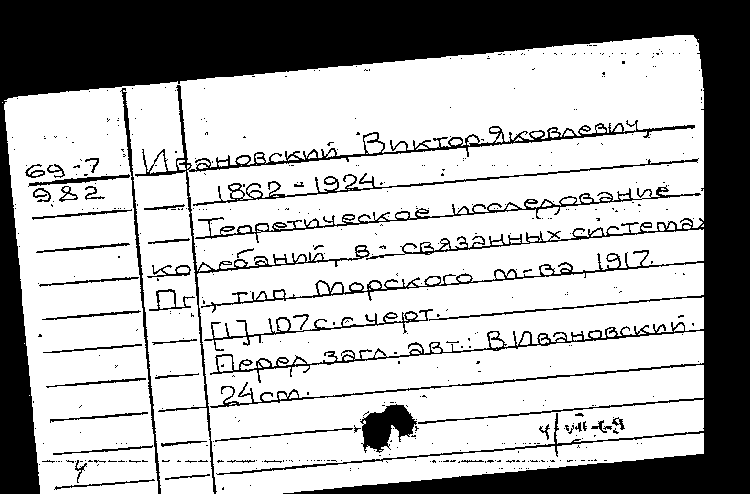 69-7
982
Ивановский, Виктор Яковлевич,
1862-1924.
Теоретическое исследование
колебаний, в связанных системах
Пг., тип. Морского м-ва, 1917.
[1], 107 с. с черт.
Перед загл. авт.: В Ивановский.
24 см.
4 VII-68